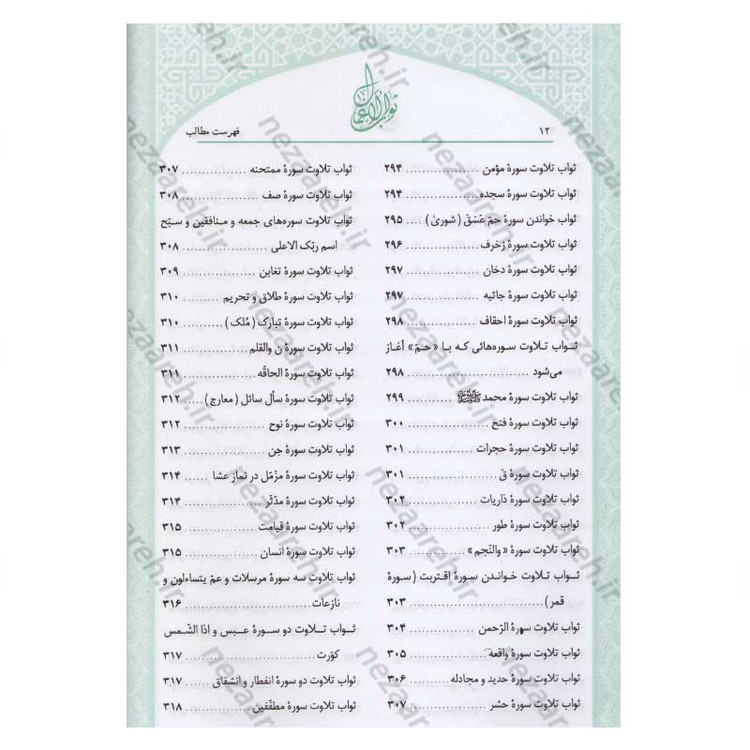 ثواب الاعمال
۱۲
فهرست مطالب
ثواب تلاوت سورهٔ مؤمن .................... ۲۹۴
ثواب تلاوت سورهٔ سجده .................... ۲۹۴
ثواب خواندن سورهٔ حمّ عسق (شوریٰ) .... ۲۹۵
ثواب تلاوت سورهٔ زخرف .................... ۲۹۶
ثواب تلاوت سورهٔ دخان .................... ۲۹۷
ثواب تلاوت سورهٔ جاثیه .................... ۲۹۷
ثواب تلاوت سورهٔ احقاف .................... ۲۹۸
ثواب تلاوت سوره‌هائی که با «حمّ» آغاز
می‌شود .................... ۲۹۸
ثواب تلاوت سورهٔ محمد ﷺ .................... ۲۹۹
ثواب تلاوت سورهٔ فتح .................... ۳۰۰
ثواب تلاوت سورهٔ حجرات .................... ۳۰۱
ثواب تلاوت سورهٔ قٓ .................... ۳۰۱
ثواب تلاوت سورهٔ ذاریات .................... ۳۰۲
ثواب تلاوت سورهٔ طور .................... ۳۰۲
ثواب تلاوت سورهٔ «والنّجم» .................... ۳۰۳
ثواب تلاوت خواندن سورهٔ اقتربت (سورهٔ
قمر) .................... ۳۰۳
ثواب تلاوت سورهٔ الرّحمن .................... ۳۰۴
ثواب تلاوت سورهٔ واقعه .................... ۳۰۵
ثواب تلاوت سورهٔ حدید و مجادله .................... ۳۰۶
ثواب تلاوت سورهٔ حشر .................... ۳۰۷
ثواب تلاوت سورهٔ ممتحنه .................... ۳۰۷
ثواب تلاوت سورهٔ صف .................... ۳۰۸
ثواب تلاوت سوره‌های جمعه و منافقین و سبّح
اسم ربّک الاعلی .................... ۳۰۸
ثواب تلاوت سورهٔ تغابن .................... ۳۰۹
ثواب تلاوت سورهٔ طلاق و تحریم .................... ۳۱۰
ثواب تلاوت سورهٔ تبارک (مُلک) .................... ۳۱۰
ثواب تلاوت سورهٔ ن والقلم .................... ۳۱۱
ثواب تلاوت سورهٔ الحاقّه .................... ۳۱۱
ثواب تلاوت سورهٔ سأل سائل (معارج) ..... ۳۱۲
ثواب تلاوت سورهٔ نوح .................... ۳۱۲
ثواب تلاوت سورهٔ جن .................... ۳۱۳
ثواب تلاوت سورهٔ مزّمل در نماز عشا .... ۳۱۴
ثواب تلاوت سورهٔ مدّثّر .................... ۳۱۴
ثواب تلاوت سورهٔ قیامت .................... ۳۱۵
ثواب تلاوت سورهٔ انسان .................... ۳۱۵
ثواب تلاوت سه سورهٔ مرسلات و عمّ یتساءلون و
نازعات .................... ۳۱۶
ثواب تلاوت دو سورهٔ عبس و اذا الشّمس
کوّرت .................... ۳۱۷
ثواب تلاوت دو سورهٔ انفطار و انشقاق .... ۳۱۷
ثواب تلاوت سورهٔ مطفّفین .................... ۳۱۸
nezaareh.ir